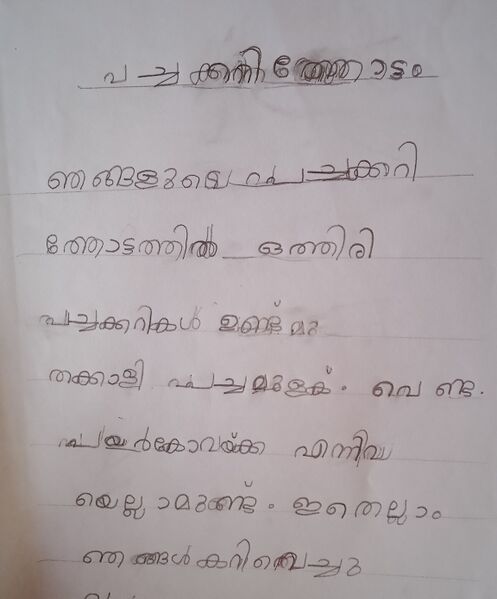 പച്ചക്കറിത്തോട്ടം
ഞങ്ങളുടെ പച്ചക്കറി
ത്തോട്ടത്തിൽ ഒത്തിരി
പച്ചക്കറികൾ ഉണ്ട്
തക്കാളി പച്ചമുളക്. വെണ്ട.
പയർകോവയ്ക്ക എന്നിവ
യെല്ലാമുണ്ട്. ഇതെല്ലാം
ഞങ്ങൾ കറിവെച്ചു